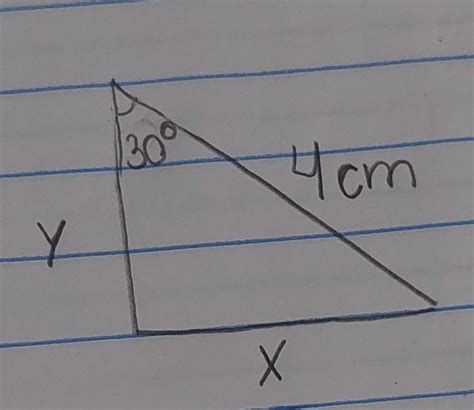 30°
4cm
Y
X